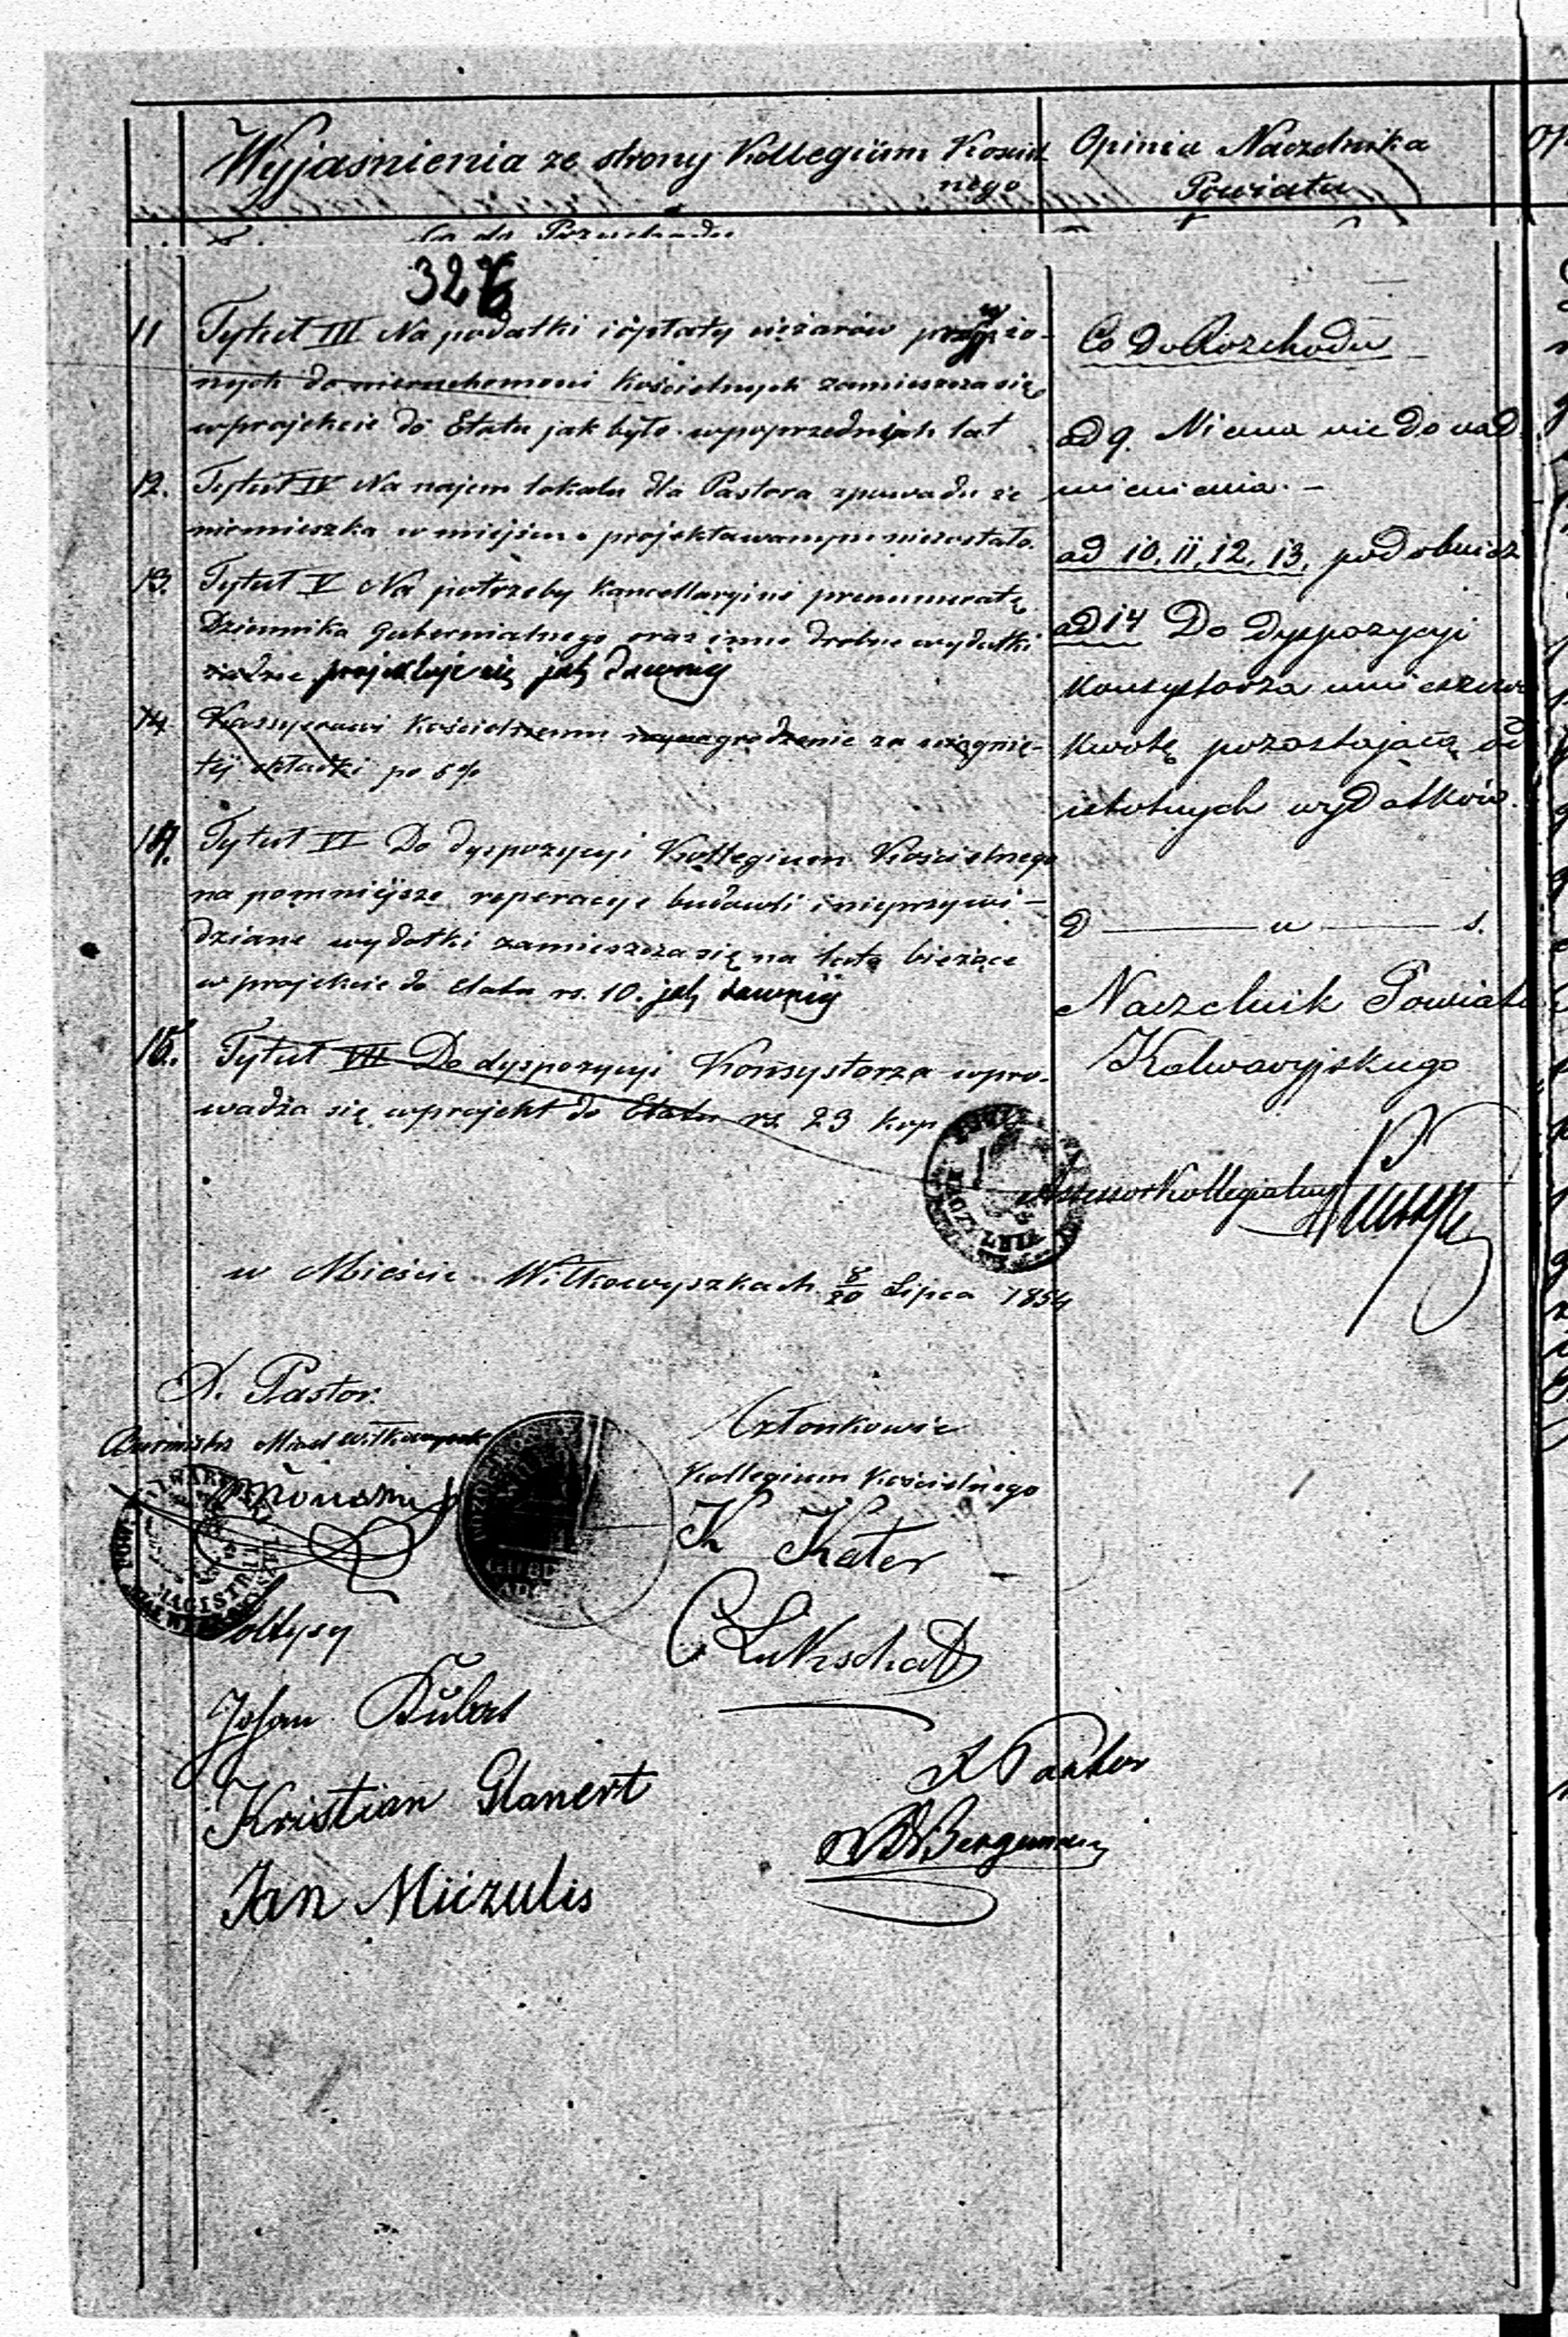 Wyjaśnienia ze strony Kollegium Kościel
nego
Opinia Naczelnika
Powiatu
326
11 Tytuł III Na podatki i opłaty ciężarów przywią-
zanych do nieruchomości kościelnych zamieszcza się
w projekcie do Etatu jak było w poprzednich lat
12. Tytuł IV Na najem lokalu dla Pastora z powodu że
niemieszka w miejscu projektowanym niezostało.
13. Tytuł V Na potrzeby Kancellaryine prenumeratę
Dziennika Gubernialnego oraz inne drobne wydatki
projektuje się jak dawniej
14. Kassyerowi Kościelnemu wynagrodzenie za ściągnię-
tej składki po 5%
14. Tytuł VI Do dyspozycyi Kollegium Kościelnego
na pomniejsze reperacye budowli i nieprzewi-
dziane wydatki zamieszcza się na lata bieżące
w projekcie do Etatu rs. 10. jak dawniej
15. Tytuł VII Do dyspozycyi Konsystorza wpro-
wadza się w projekt do Etatu rs. 23 kop
w Mieście Wiłkowyszkach 8/20 Lipca 1854
X. Pastor.
Burmistrz Miasta
MAGISTRAT
Sołtysy
Johan Kubert
Kristian Glanert
Jan Miczulis
Członkowie
Kollegium Kościelnego
K Kater
C Lukschat
Bergmann
Co do Rozchodu
ad 9. Niema nic do nad
mienienia. –
ad 10, 11, 12, 13, podobnież
ad 14 Do dyspozycyi
Konsystorza umieszczono
Kwotę pozostającą od
istotnych wydatków.
D — u — s.
Naczelnik Powiatu
Kalwaryjskiego
Assessor Kollegialny